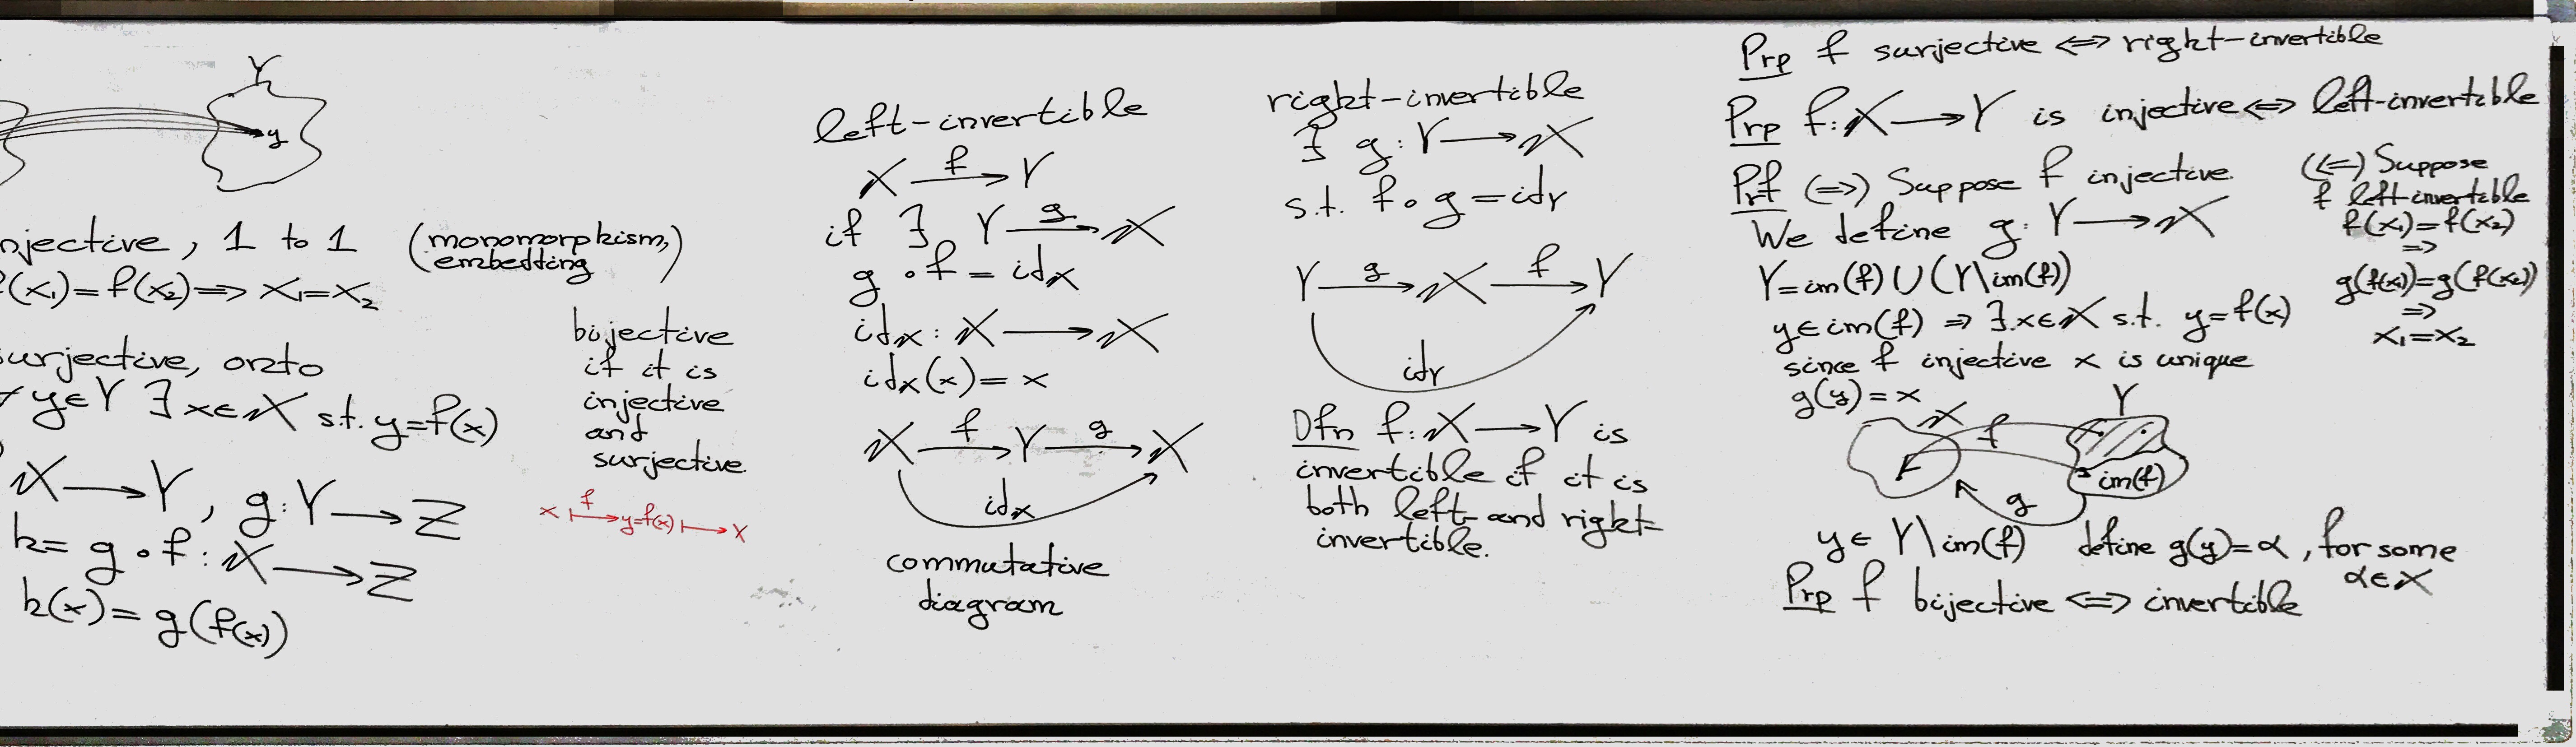 Y
y
njective, 1 to 1 (monomorphism, embedding)
f(x₁)=f(x₂)⟹ x₁=x₂
surjective, onto
∀ y∈Y ∃ x∈X s.t. y=f(x)
X⟶Y, g:Y⟶Z
h= g∘f:X⟶Z
h(x)= g(f(x))
bijective
if it is
injective
and
surjective.
f
x ⟼ y=f(x) ⟼ x
left-invertible
X f⟶ Y
if ∃ Y g⟶ X
g∘f = id_X
id_X: X ⟶ X
id_X(x)= x
X f⟶ Y g⟶ X
id_X
commutative
diagram
right-invertible
∃ g:Y⟶X
s.t. f∘g=id_Y
Y g⟶ X f⟶ Y
id_Y
Dfn f:X⟶Y is
invertible if it is
both left- and right-
invertible.
Prp f surjective ⟺ right-invertible
Prp f:X⟶Y is injective ⟺ left-invertible
Prf (⟹) Suppose f injective.
We define g:Y⟶X
Y=im(f)∪(Y\im(f))
y∈im(f) ⇒ ∃ x∈X s.t. y=f(x)
since f injective x is unique
g(y)=x
X f Y
im(f)
g
y∈ Y\im(f) define g(y)=α, for some
α∈X
Prp f bijective ⟺ invertible
(⟸) Suppose
f left-invertible
f(x₁)=f(x₂)
⟹
g(f(x₁))=g(f(x₂))
⟹
x₁=x₂